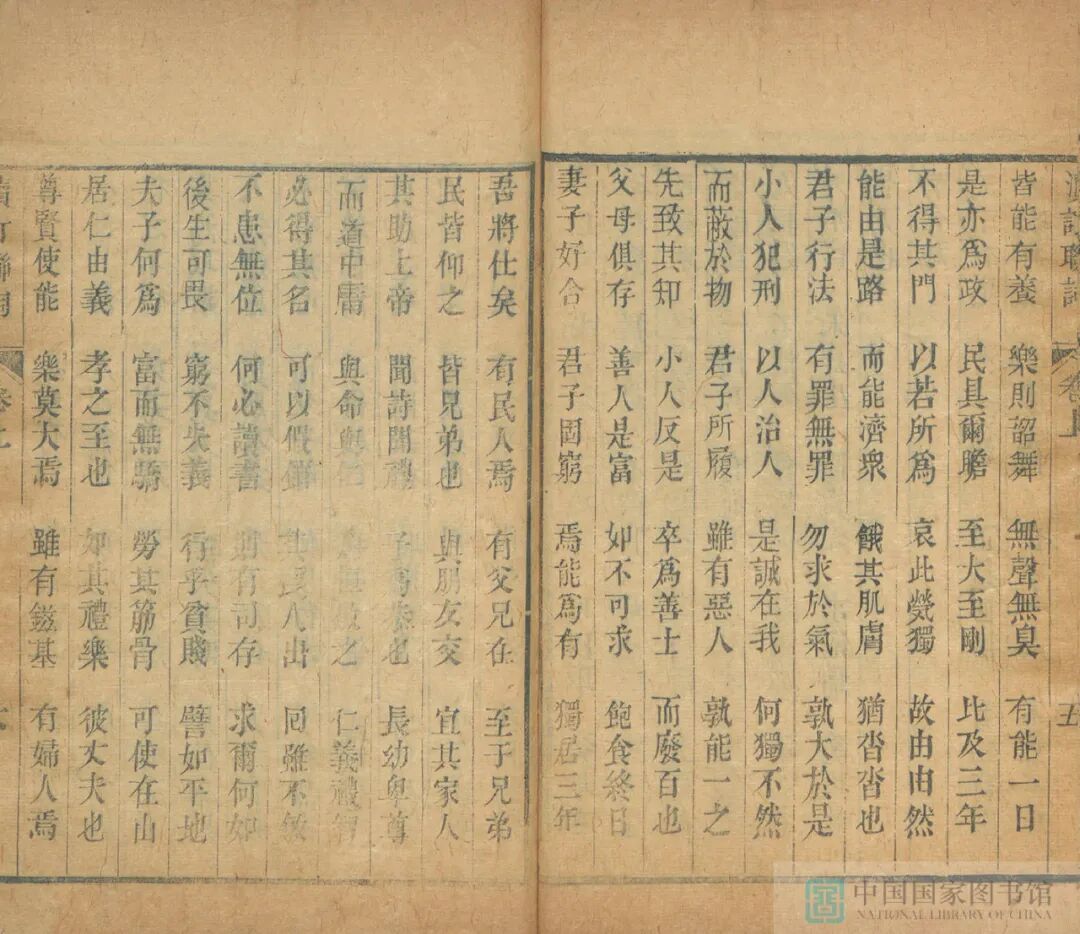 皆能有養 樂則韶舞 無聲無臭 有能一日
是亦爲政 民具爾瞻 至大至剛 比及三年
不得其門 以若所爲 哀此煢獨 故由由然
能由是路 而能濟衆 餓其肌膚 猶沓沓也
君子行法 有罪無罪 勿求於氣 孰大於是
小人犯刑 以人治人 是誠在我 何獨不然
而蔽於物 君子所履 雖有惡人 孰能一之
先致其知 小人反是 卒爲善士 而廢百也
父母俱存 善人是富 如不可求 飽食終日
妻子好合 君子固窮 焉能爲有 獨居三年
吾將仕矣 有民人焉 有父兄在 至于兄弟
民皆仰之 皆兄弟也 與朋友交 宜其家人
其助上帝 聞詩聞禮 長幼卑尊
而道中庸 與命與 之 仁義禮智
必得其名 可以假 出 回雖不敏
不患無位 何必讀書 有司存 求爾何如
後生可畏 窮不失義 行乎貧賤 譬如平地
夫子何爲 富而無驕 勞其筋骨 可使在山
居仁由義 孝之至也 如其禮樂 彼丈夫也
尊賢使能 樂莫大焉 雖有鎡基 有婦人焉
卷上
五
中国国家图书馆
NATIONAL LIBRARY OF CHINA